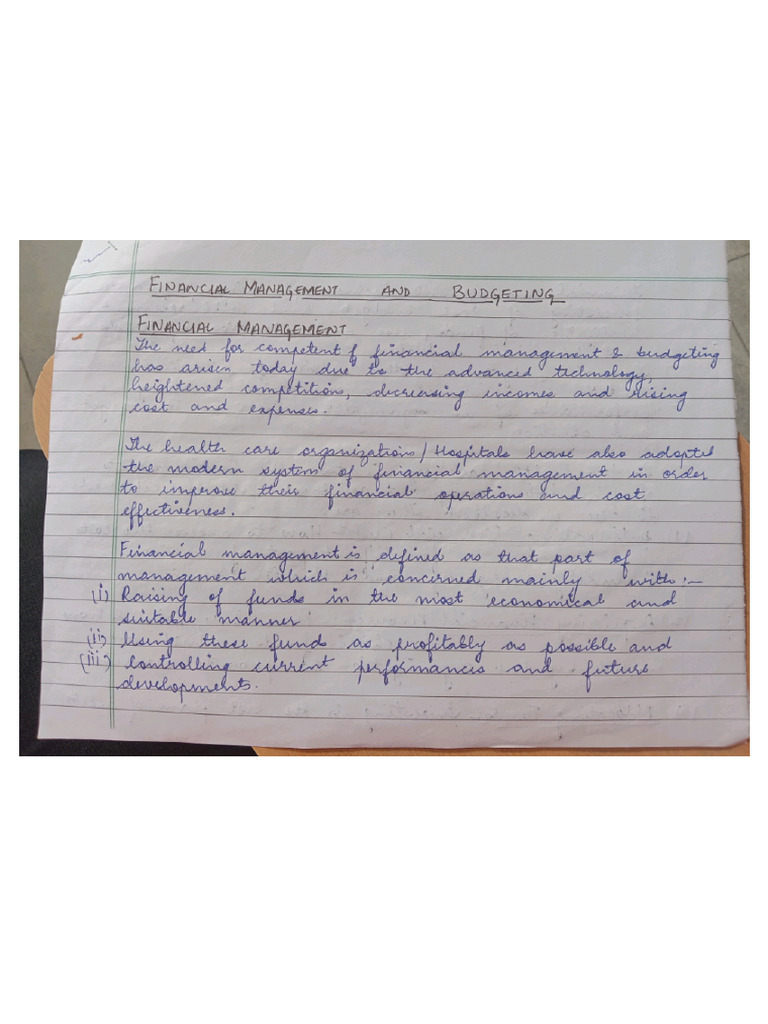 FINANCIAL MANAGEMENT AND BUDGETING
FINANCIAL MANAGEMENT
The need for competent f financial management & budgeting
has arisen today due to the advanced technology,
heightened competitions, decreasing incomes and rising
cost and expenses.
The health care organizations/Hospitals have also adopted
the modern system of financial management in order
to improve their financial operations and cost
effectiveness.
Financial management is defined as that part of
management which is concerned mainly with:-
(i) Raising of funds in the most economical and
suitable manner
(ii) Using these fund as profitably as possible and
(iii) controlling current performances and future
developments.